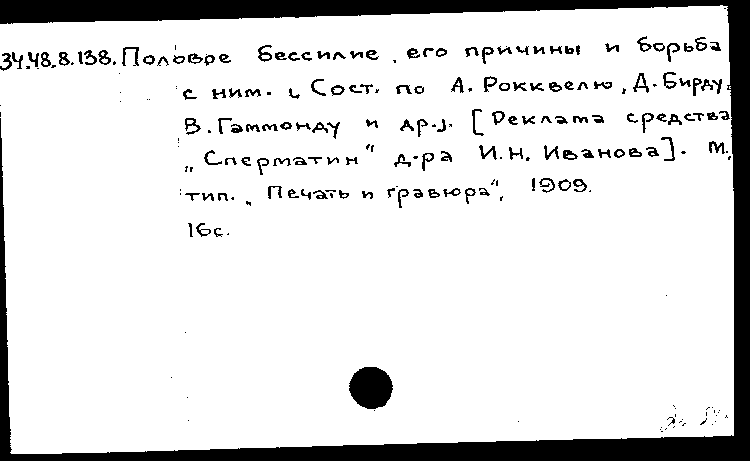 34.48.8.138. Половое бессилие, его причины и борьба
с ним. (Сост. по А. Рокквелю, Д. Бирду,
В. Гаммонду и др.). [Реклама средства
„Сперматин“ д-ра И.Н. Иванова]. М.,
тип. „Печать и гравюра“, 1909.
16с.